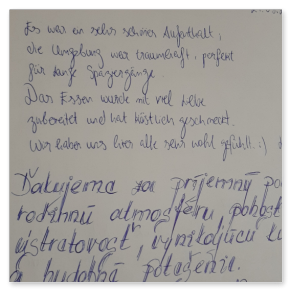 Es war ein sehr schöner Aufenthalt,
die Umgebung war traumhaft, perfekt
für lange Spaziergänge.
Das Essen wurde mit viel Liebe
zubereitet und hat köstlich geschmeckt.
Wir haben uns hier alle sehr wohl gefühlt :)
Ďakujeme za príjemný
rodinnú atmosféru, pohost
ústretovosť, vynikajúcu
a hudobné potešenie.